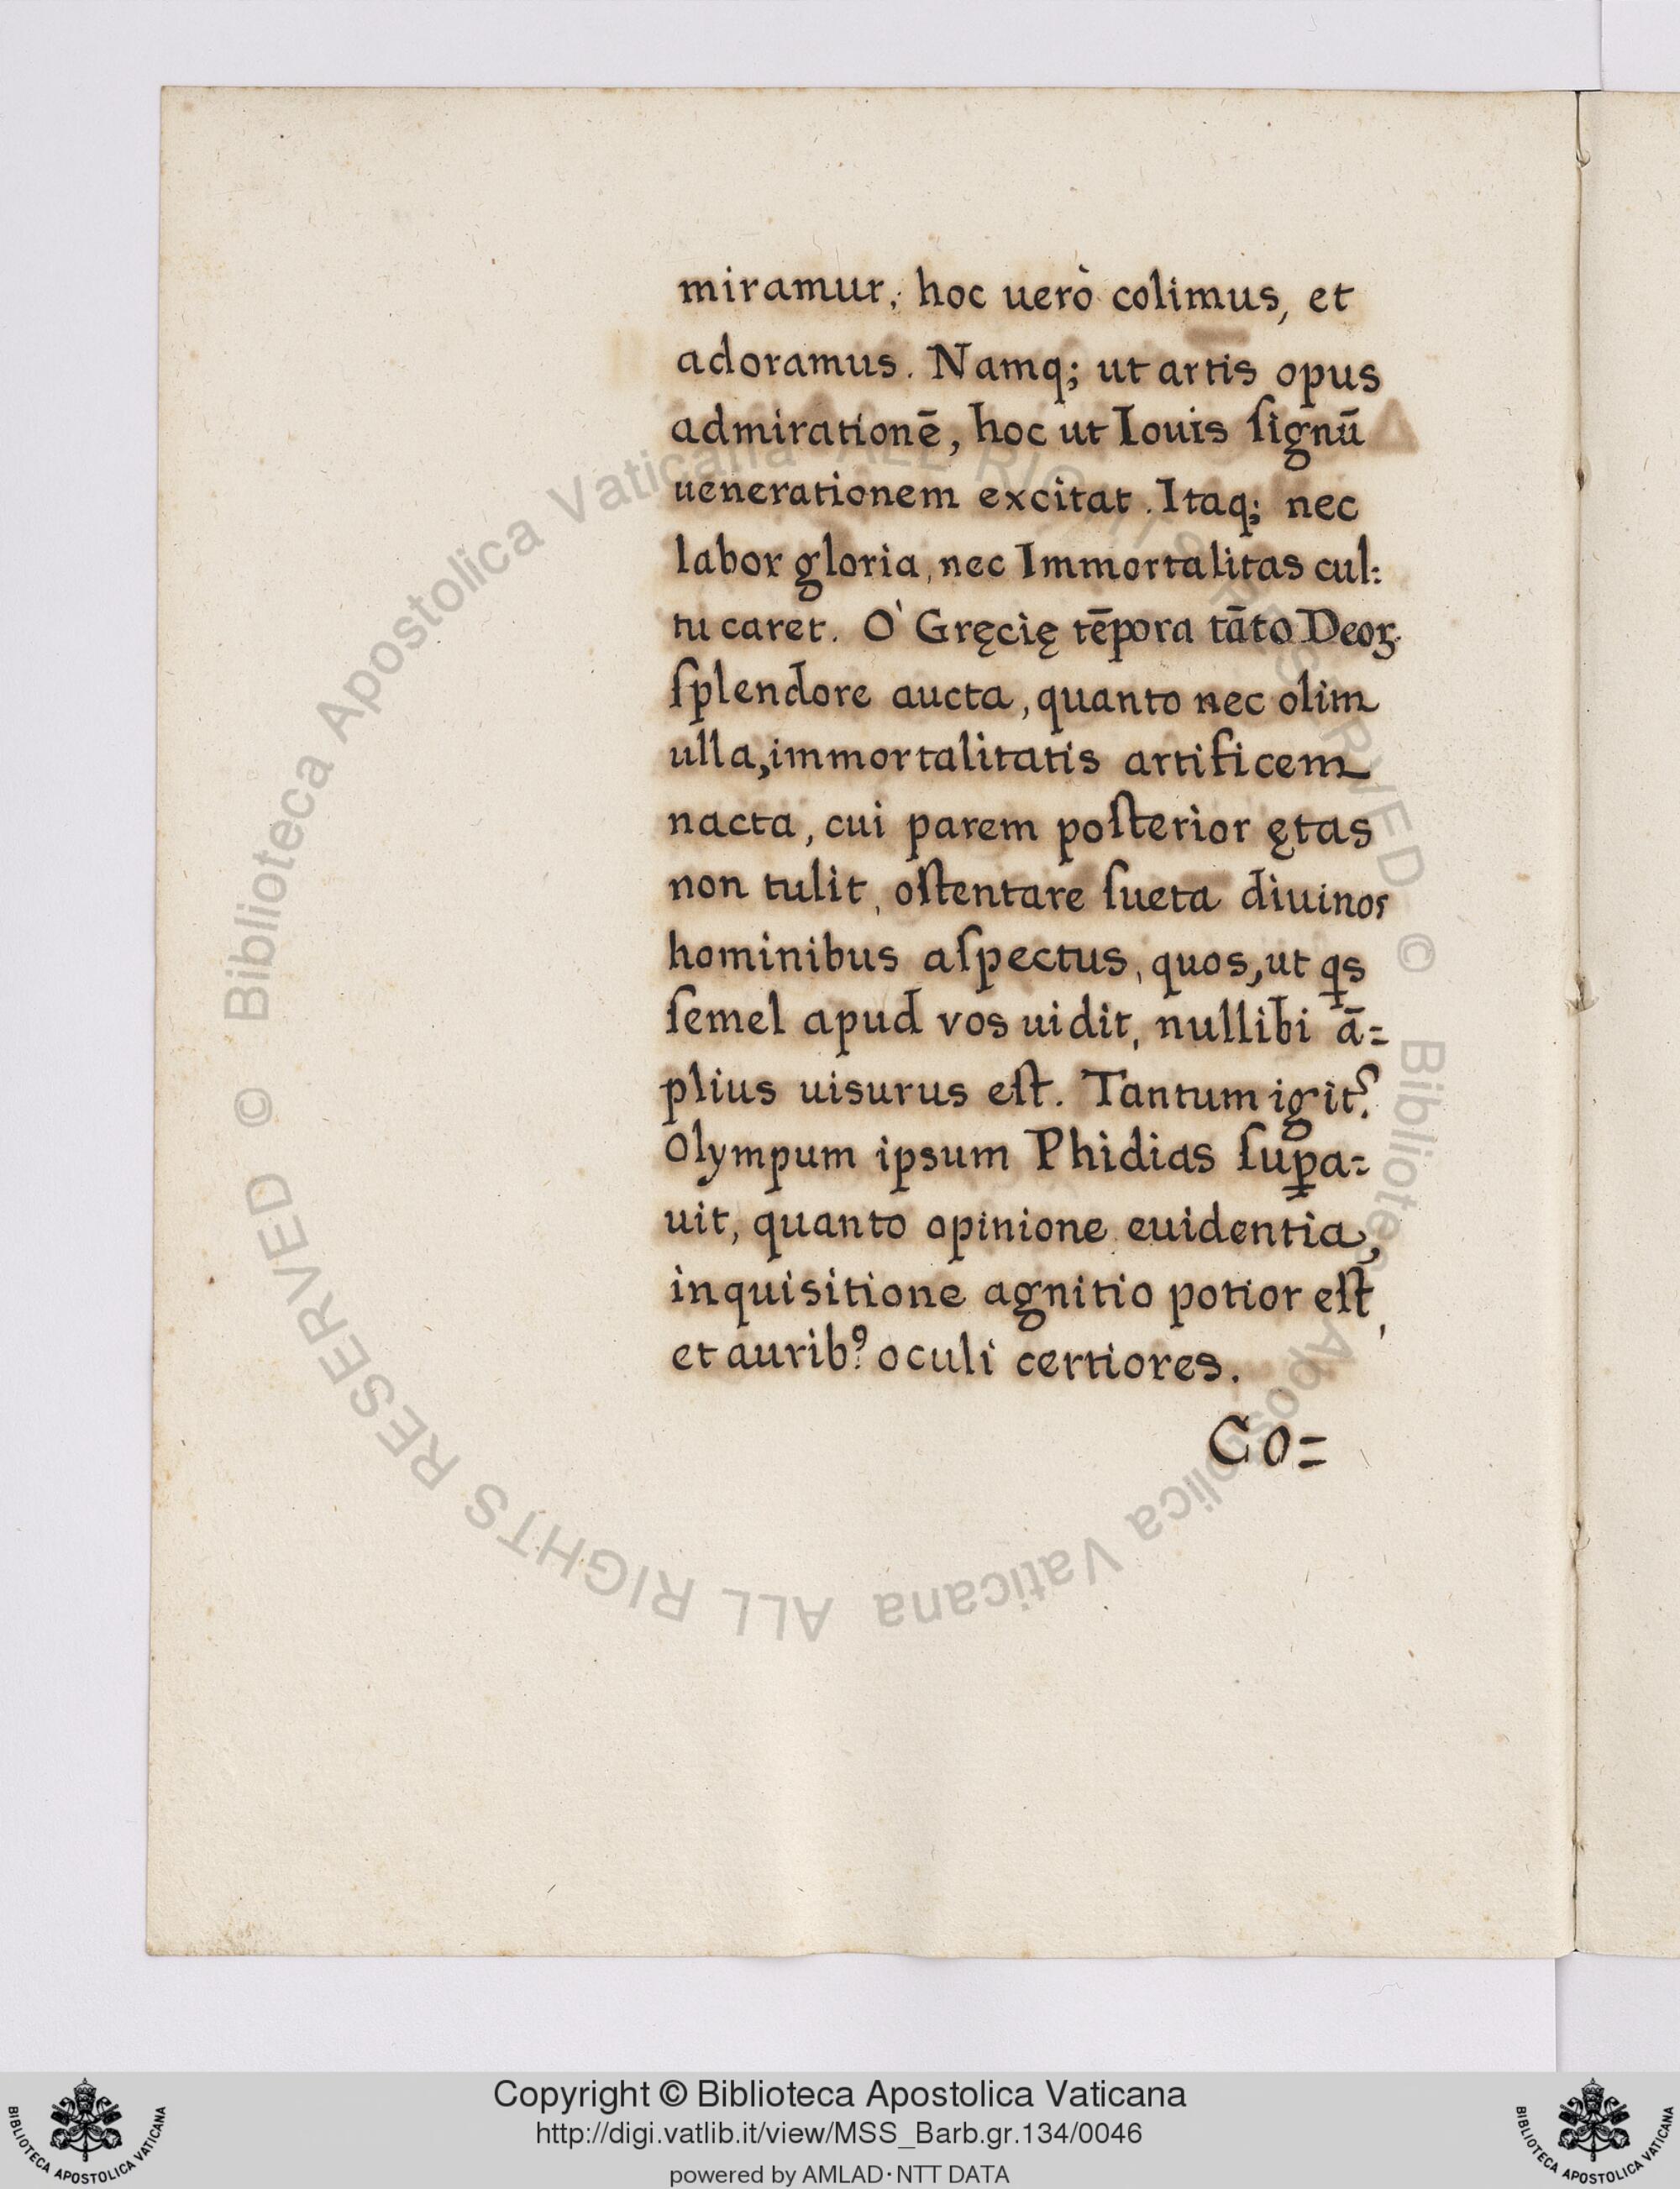 miramur, hoc uerò colimus, et
adoramus. Namq; ut artis opus
admirationē, hoc ut Iouis ſignū
uenerationem excitat. Itaq; nec
labor gloria, nec Immortalitas cul:
tu caret. O' Gręcię tēpora tāto Deoꝝ
ſplendore aucta, quanto nec olim
ulla, immortalitatis artificem
nacta, cui parem poſterior ętas
non tulit, oſtentare ſueta diuinos
hominibus aſpectus, quos, ut qs
ſemel apud vos uidit, nullibi ā=
plius uisurus eſt. Tantum igit̉.
Olympum ipsum Phidias ſuꝑa=
uit, quanto opinione euidentia,
inquisitione agnitio potior eſt,
et aurib9 oculi certiores.
Co=
© Biblioteca Apostolica Vaticana ALL RIGHTS RESERVED © Biblioteca Apostolica Vaticana ALL RIGHTS RESERVED
Copyright © Biblioteca Apostolica Vaticana
http://digi.vatlib.it/view/MSS_Barb.gr.134/0046
powered by AMLAD·NTT DATA
BIBLIOTECA APOSTOLICA VATICANA
BIBLIOTECA APOSTOLICA VATICANA